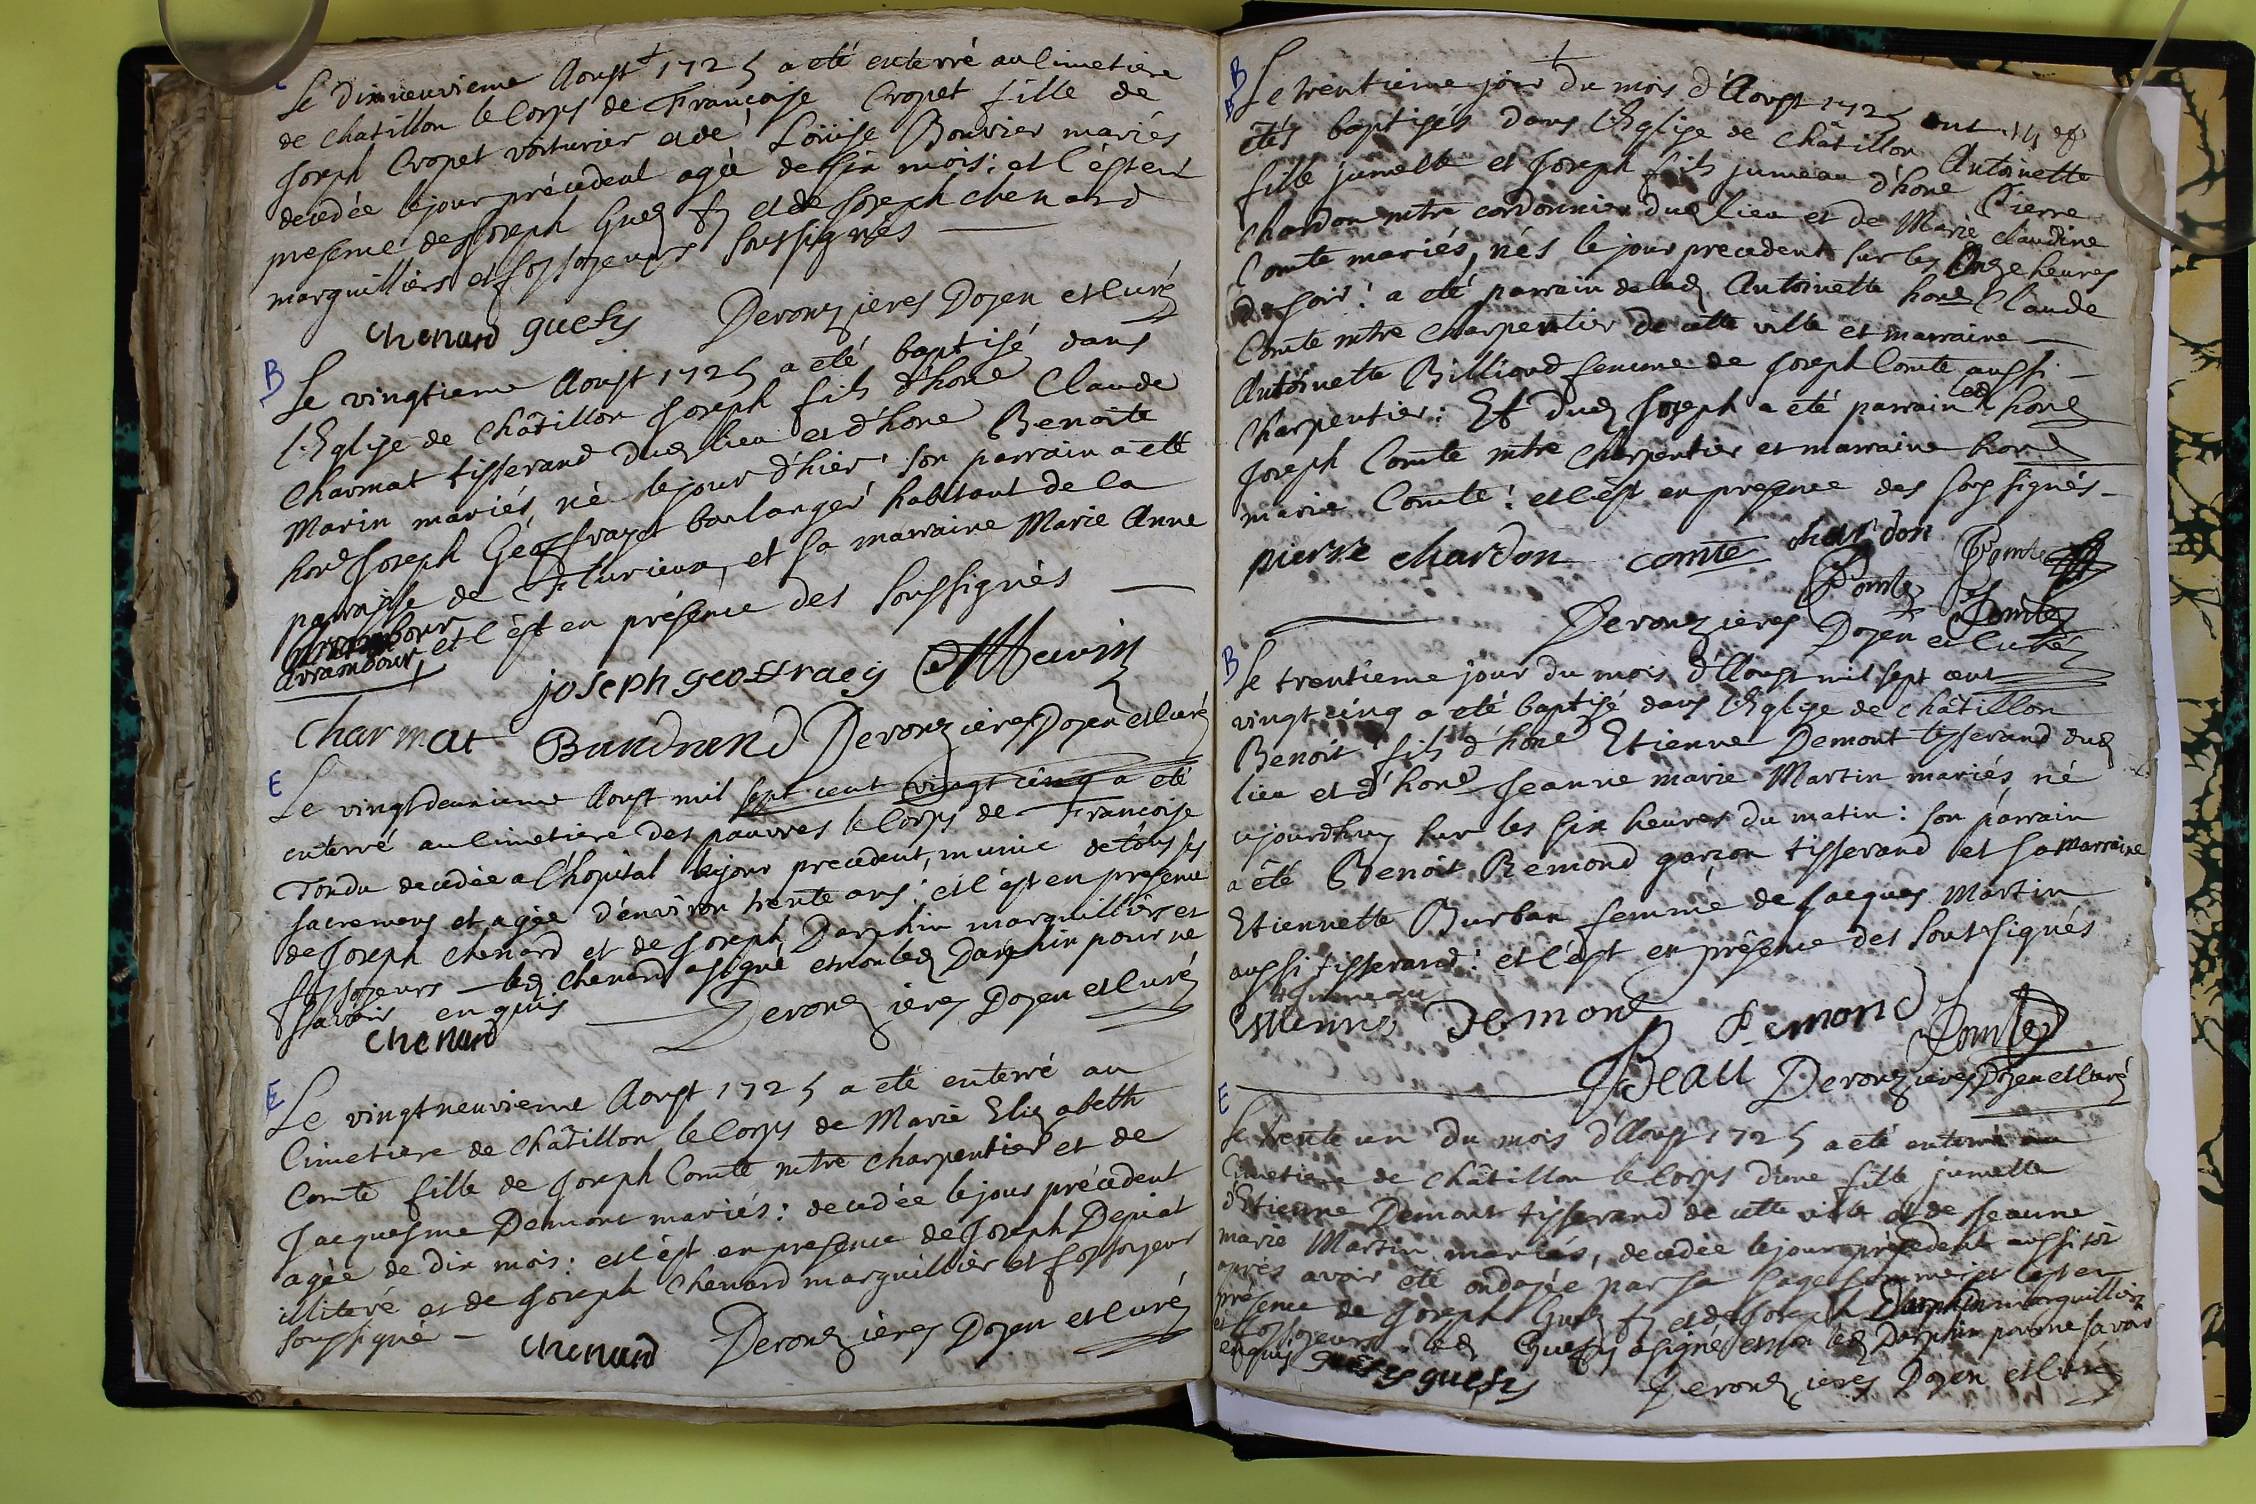 E
Le dixneuvieme Aoust 1725 a eté enterré au Cimetiere
de Chatillon le Corps de Françoise Cropet fille de
Joseph Cropet voiturier et de Loüise Bouvier mariés
decedée le jour précedent agée de six mois: et c'est en
presence de Joseph Guesy et de Joseph chenard
marguilliers et fossoyeurs soussignés
chenard guesy Derouzieres Doyen et Curé
B
Le vingtieme Aoust 1725 a eté baptisé dans
l'Eglise de Châtillon Joseph fils d'hone Claude
Charmat tisserand dud lieu et d'hone Benoite
Marin mariés, né le jour d'hier: son parrain a eté
hone Joseph Geoffray boulanger habitant de la
parroisse de Flurieux, et sa marraine Marie Anne
Arrambour, et c'est en présence des soussignés
joseph geoffraey
Charmat Bundrand Derouzieres Doyen et Curé
E
Le vingtdeuxieme Aoust mil sept cent vingt cinq a eté
enterré au Cimetiere des pauvres le Corps de Françoise
Tondu decedée a l'hopital le jour precedent, munie de tous ses
sacremens et agée d'environ trente ans: et c'est en presence
de Joseph chenard et de Joseph Darphin marguilliers et
fossoyeurs led chenard a signé et non led Darphin pour ne
sçavoir enquis Derouzieres Doyen et Curé
chenard
E
Le vingtneuvieme Aoust 1725 a eté enterré au
Cimetiere de Châtillon le Corps de Marie Elizabeth
Comte fille de Joseph Comte mtre charpentier et de
Jacquesme Demont mariés: decedée le jour précedent
agée de dix mois: et c'est en presence de Joseph Depiat
illiteré et de Joseph Chenard marguillier et fossoyeur
soussigné chenard Derouzieres Doyen et Curé
B
B
Le trentieme jour du mois d'Aoust 1725 ont
etés baptisés dans l'Eglise de Châtillon Antoinette
fille jumelle et Joseph fils jumeau d'hone Pierre
Chardon mtre cordonnier dud lieu et de Marie Claudine
Comte mariés, nés le jour precedent sur les Onze heures
du soir: a eté parrain de lad Antoinette hone Claude
Comte mtre Charpentier de cette ville et marraine
Antoinette Billioud femme de Joseph Comte aussi
Charpentier: Et dud Joseph a eté parrain led hone
Joseph Comte mtre Charpentier et marraine hone
marie Comte: et c'est en presence des soussignés
pierre chardon comte chardon Comte
Comte Comte
Derouzieres Doyen et Curé
B
Le trentieme jour du mois d'Aoust mil sept cent
vingt cinq a eté baptisé dans l'Eglise de Châtillon
Benoit fils d'hone Etienne Demont tisserand dud
lieu et d'hone Jeanne marie Martin mariés, né
ajourdhuy sur les six heures du matin: son parrain
a été Benoit Remond garçon tisserand et sa marraine
Etiennette Burban femme de Jacques Martin
aussi tisserand: et c'est en présence des soussignés
Estienne Demont Remond Comte
Beau Derouzieres Doyen et Curé
E
Le trente un du mois d'Aoust 1725 a eté enterré au
Cimetiere de Châtillon le Corps d'une fille jumelle
d'Etienne Demont tisserand de cette ville et de Jeanne
marie Martin mariés, decedée le jour précedent aussitôt
après avoir été ondoyée par sa sage femme: et c'est en
présence de Joseph Guesy et de Joseph Darphin marguilliers
et fossoyeurs: led Guesy a signé et non led Darphin pour ne savoir
enquis guesy Derouzieres Doyen et Curé